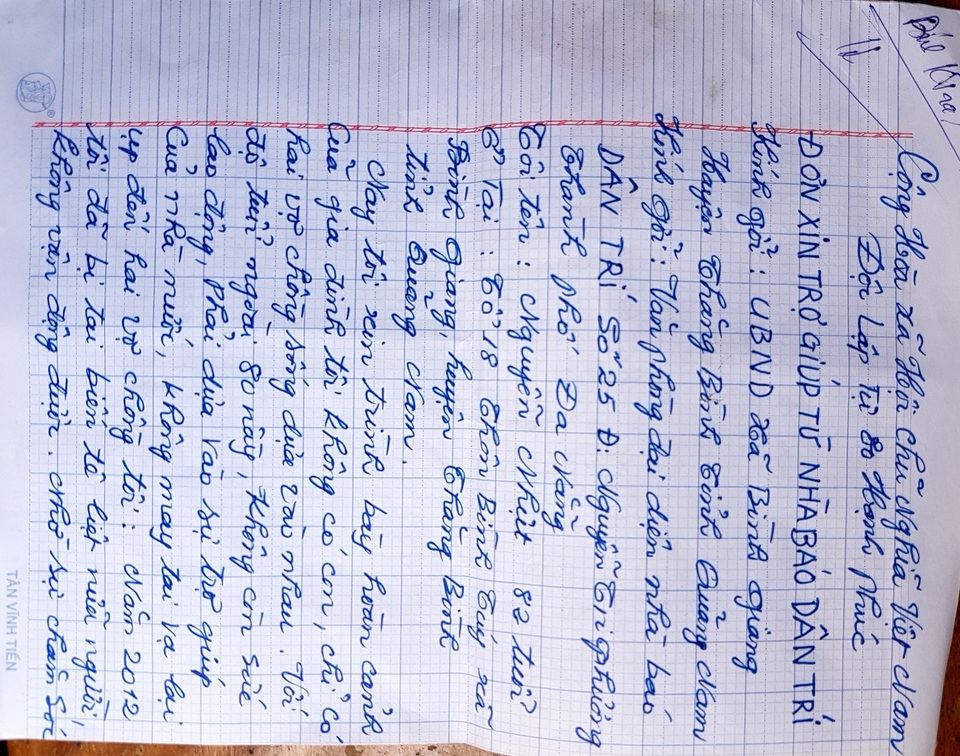 Cộng Hòa xã Hội Chủ Nghĩa Việt Nam
Độc Lập Tự do Hạnh Phúc
ĐƠN XIN TRỢ GIÚP TỪ NHÀ BÁO DÂN TRÍ
Kính gởi : UBND xã Bình Giang
Huyện Thăng Bình Tỉnh Quảng Nam
Kính gởi : Văn phòng đại diện nhà báo
DÂN TRÍ SỐ 25 Đ: Nguyễn Tri Phương
Thành phố Đà Nẵng
Tôi tên : Nguyễn Nhựt 82 tuổi
Ở Tại : Tổ 18 Thôn Bình Túy xã
Bình Giang, huyện Thăng Bình
tỉnh Quảng Nam.
Nay tôi xin trình bày hoàn cảnh
Của gia đình tôi không có con, chỉ có
hai vợ chồng sống dựa vào nhau. Với
độ tuổi ngoài 80 này, không còn sức
lao động, phải dựa vào sự trợ giúp
Của nhà nước, không may tai va lại
ập đến hai vợ chồng tôi : Năm 2012
tôi đã bị tai biến tê liệt nửa người,
không vận động được. nhờ sự chăm sóc
TÂN VĨNH TIẾN